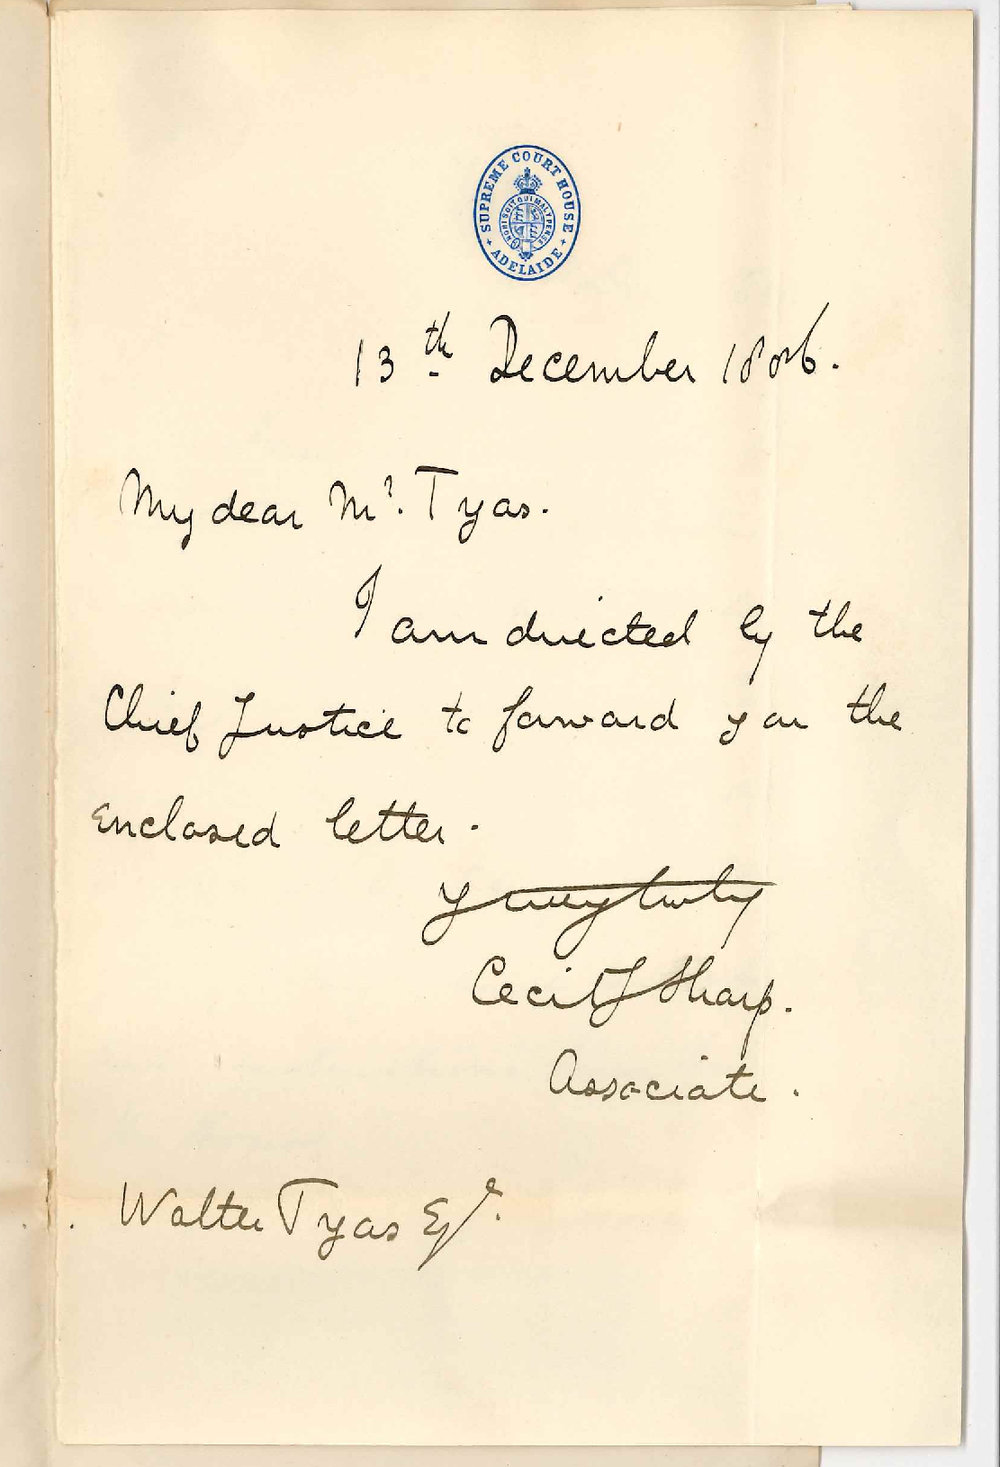 SUPREME COURT HOUSE
HONI SOIT QUI MAL Y PENSE
ADELAIDE
13th December 1886.
My dear Mr. Tyas.
I am directed by the
Chief Justice to forward you the
enclosed letter.
Yours truly
Cecil J Sharp.
Associate.
Walter Tyas Esqr.